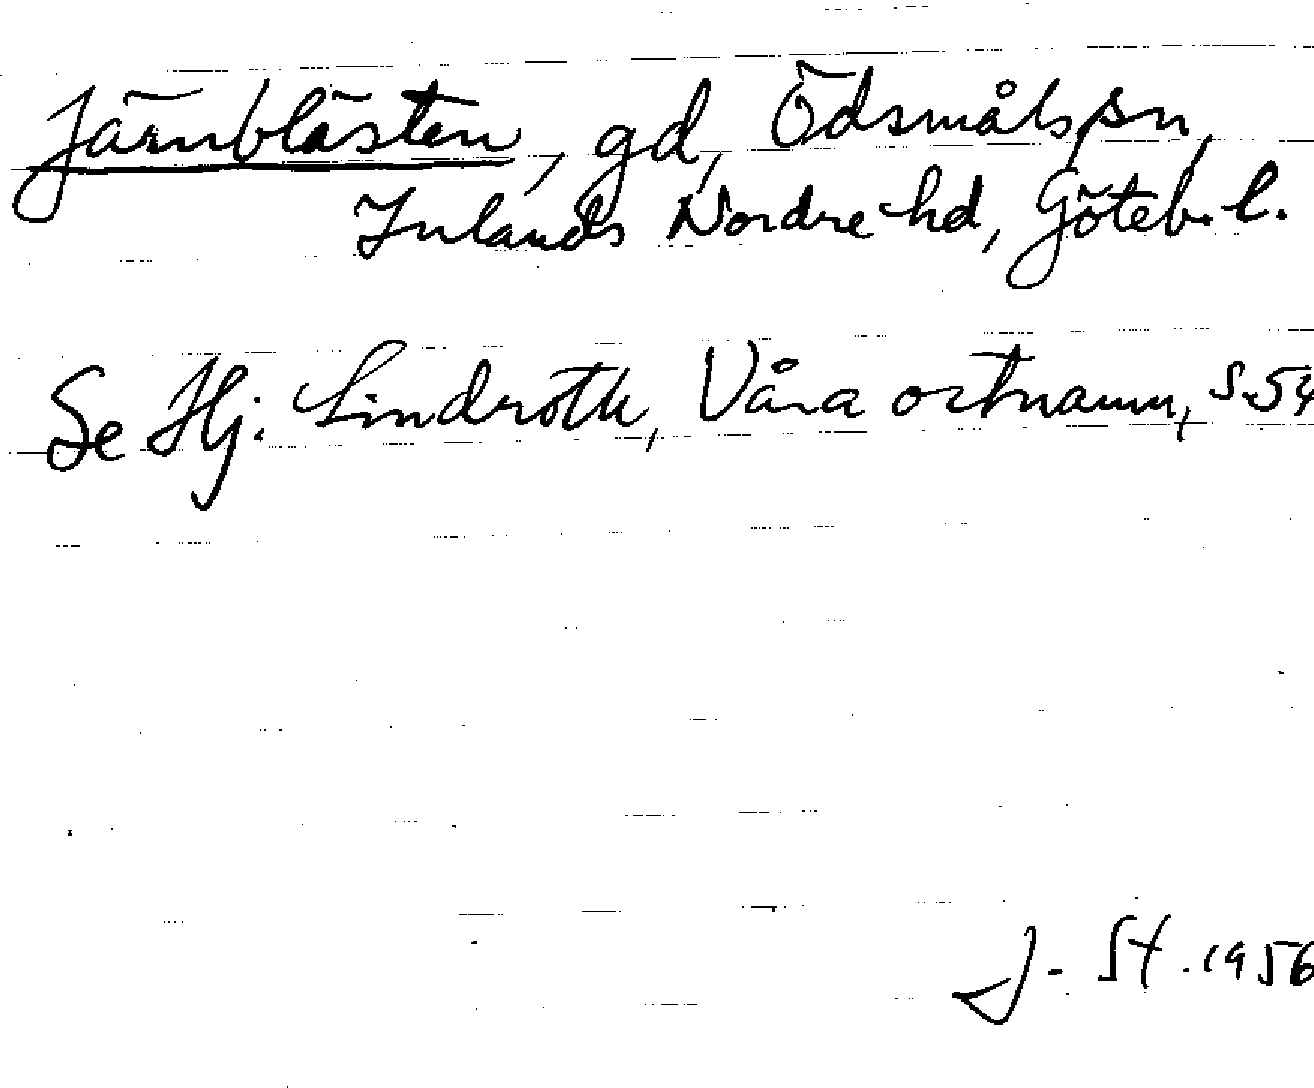 Järnblästen, gd, Ödsmåls sn,
Inlands Nordre hd, Göteb. l.
Se Hj. Lindroth, Våra ortnamn, s. 54
J. St. 1956